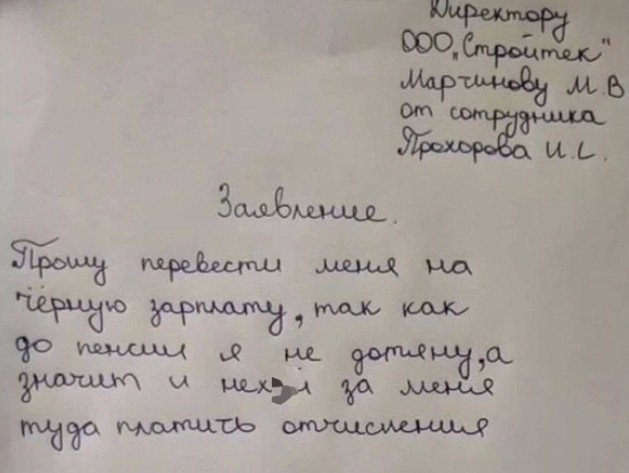 Директору
ООО „Стройтек"
Марчинову М.В
от сотрудника
Прохорова И.С.
Заявление.
Прошу перевести меня на
чёрную зарплату, так как
до пенсии я не дотяну, а
значит и за меня
туда платить отчисления